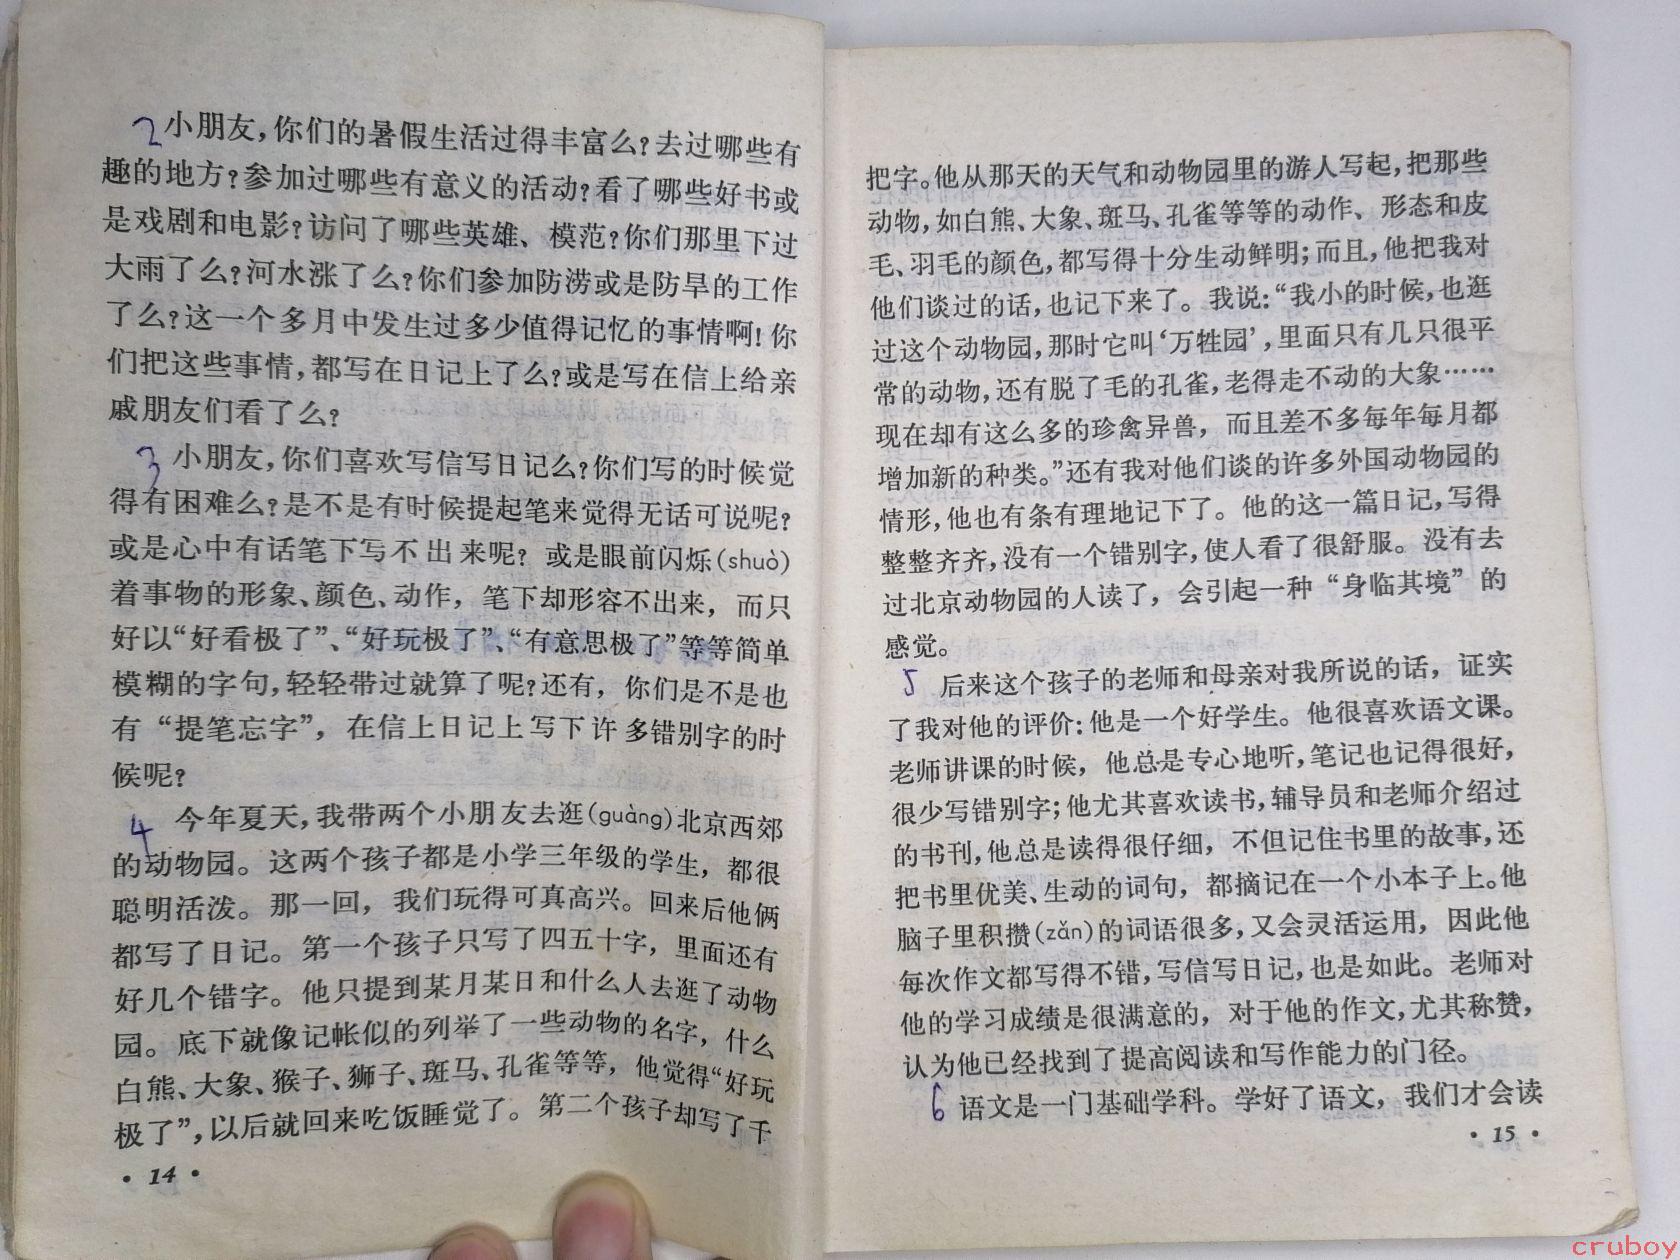 2 小朋友，你们的暑假生活过得丰富么？去过哪些有
趣的地方？参加过哪些有意义的活动？看了哪些好书或
是戏剧和电影？访问了哪些英雄、模范？你们那里下过
大雨了么？河水涨了么？你们参加防涝或是防旱的工作
了么？这一个多月中发生过多少值得记忆的事情啊！你
们把这些事情，都写在日记上了么？或是写在信上给亲
戚朋友们看了么？
3 小朋友，你们喜欢写信写日记么？你们写的时候觉
得有困难么？是不是有时候提起笔来觉得无话可说呢？
或是心中有话笔下写不出来呢？或是眼前闪烁(shuò)
着事物的形象、颜色、动作，笔下却形容不出来，而只
好以“好看极了”、“好玩极了”、“有意思极了”等等简单
模糊的字句，轻轻带过就算了呢？还有，你们是不是也
有“提笔忘字”，在信上日记上写下许多错别字的时
候呢？
4 今年夏天，我带两个小朋友去逛(guàng)北京西郊
的动物园。这两个孩子都是小学三年级的学生，都很
聪明活泼。那一回，我们玩得可真高兴。回来后他俩
都写了日记。第一个孩子只写了四五十字，里面还有
好几个错字。他只提到某月某日和什么人去逛了动物
园。底下就像记帐似的列举了一些动物的名字，什么
白熊、大象、猴子、狮子、斑马、孔雀等等，他觉得“好玩
极了”，以后就回来吃饭睡觉了。第二个孩子却写了千
• 14 •
把字。他从那天的天气和动物园里的游人写起，把那些
动物，如白熊、大象、斑马、孔雀等等的动作、形态和皮
毛、羽毛的颜色，都写得十分生动鲜明；而且，他把我对
他们谈过的话，也记下来了。我说：“我小的时候，也逛
过这个动物园，那时它叫‘万牲园’，里面只有几只很平
常的动物，还有脱了毛的孔雀，老得走不动的大象……
现在却有这么多的珍禽异兽，而且差不多每年每月都
增加新的种类。”还有我对他们谈的许多外国动物园的
情形，他也有条有理地记下了。他的这一篇日记，写得
整整齐齐，没有一个错别字，使人看了很舒服。没有去
过北京动物园的人读了，会引起一种“身临其境”的
感觉。
5 后来这个孩子的老师和母亲对我所说的话，证实
了我对他的评价：他是一个好学生。他很喜欢语文课。
老师讲课的时候，他总是专心地听，笔记也记得很好，
很少写错别字；他尤其喜欢读书，辅导员和老师介绍过
的书刊，他总是读得很仔细，不但记住书里的故事，还
把书里优美、生动的词句，都摘记在一个小本子上。他
脑子里积攒(zǎn)的词语很多，又会灵活运用，因此他
每次作文都写得不错，写信写日记，也是如此。老师对
他的学习成绩是很满意的，对于他的作文，尤其称赞，
认为他已经找到了提高阅读和写作能力的门径。
6 语文是一门基础学科。学好了语文，我们才会读
• 15 •
cruboy